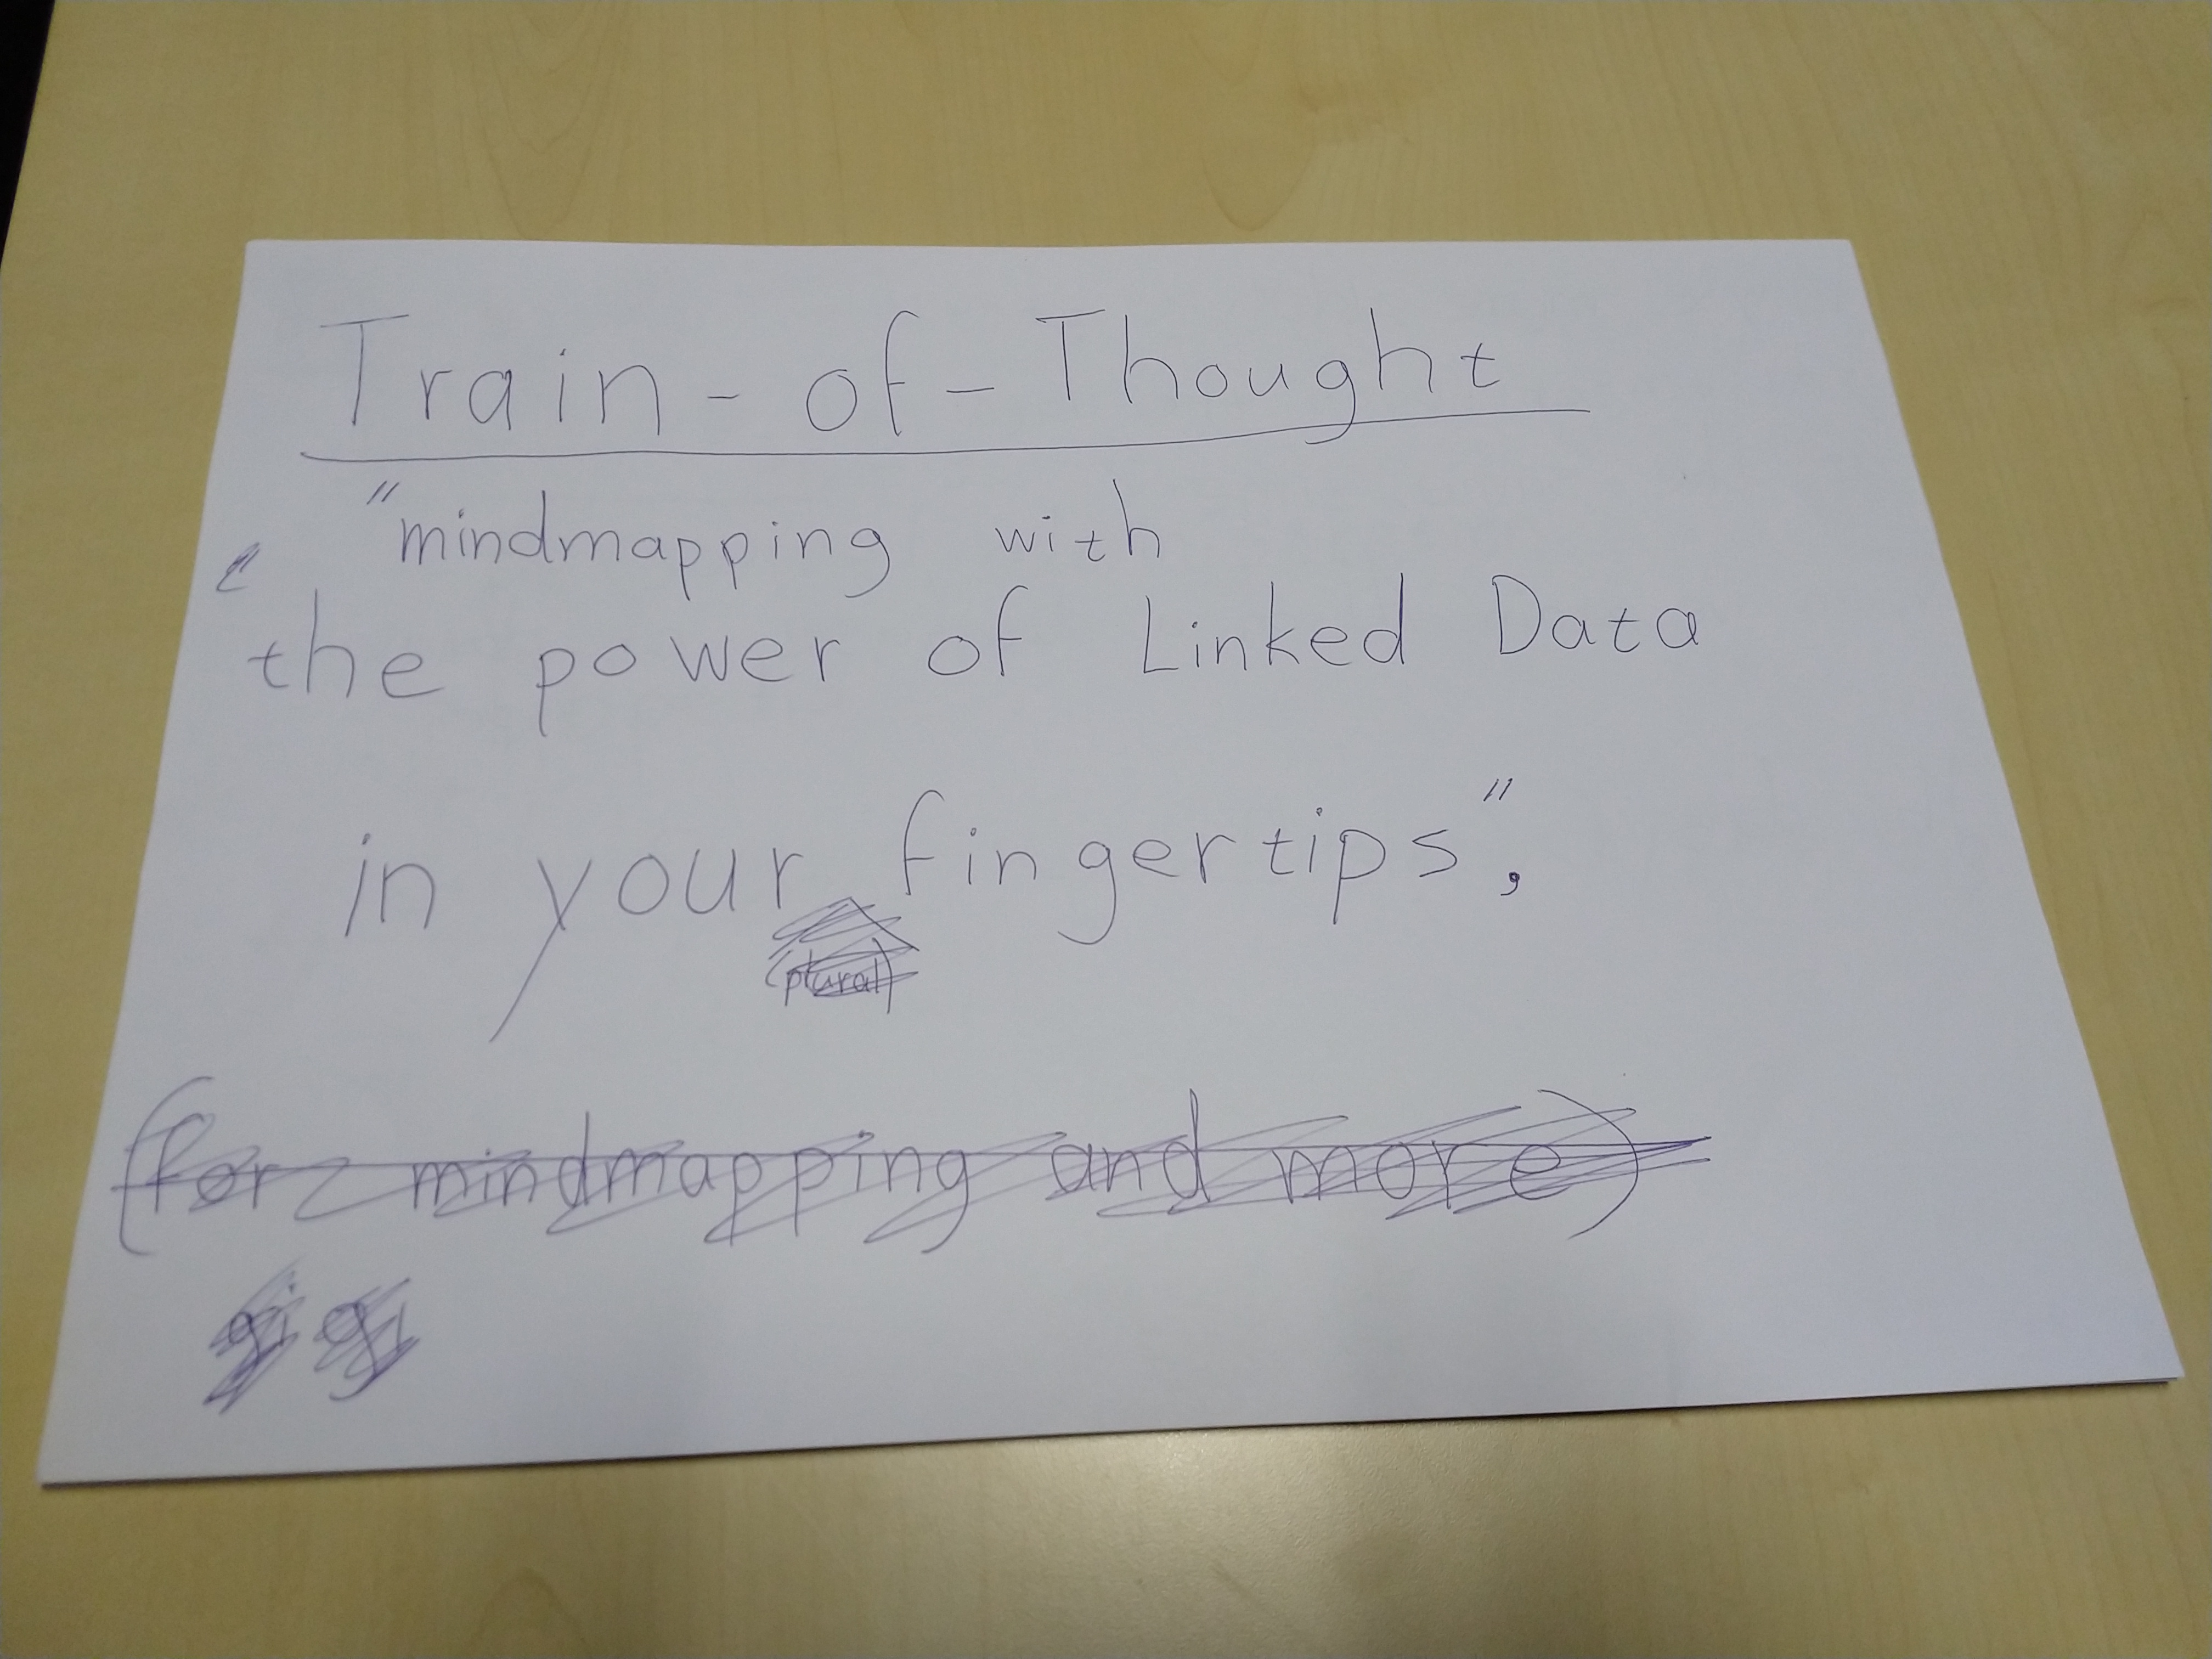 Train-of-Thought
"mindmapping with
the power of Linked Data
in your fingertips",
(plural)
(for mindmapping and more)